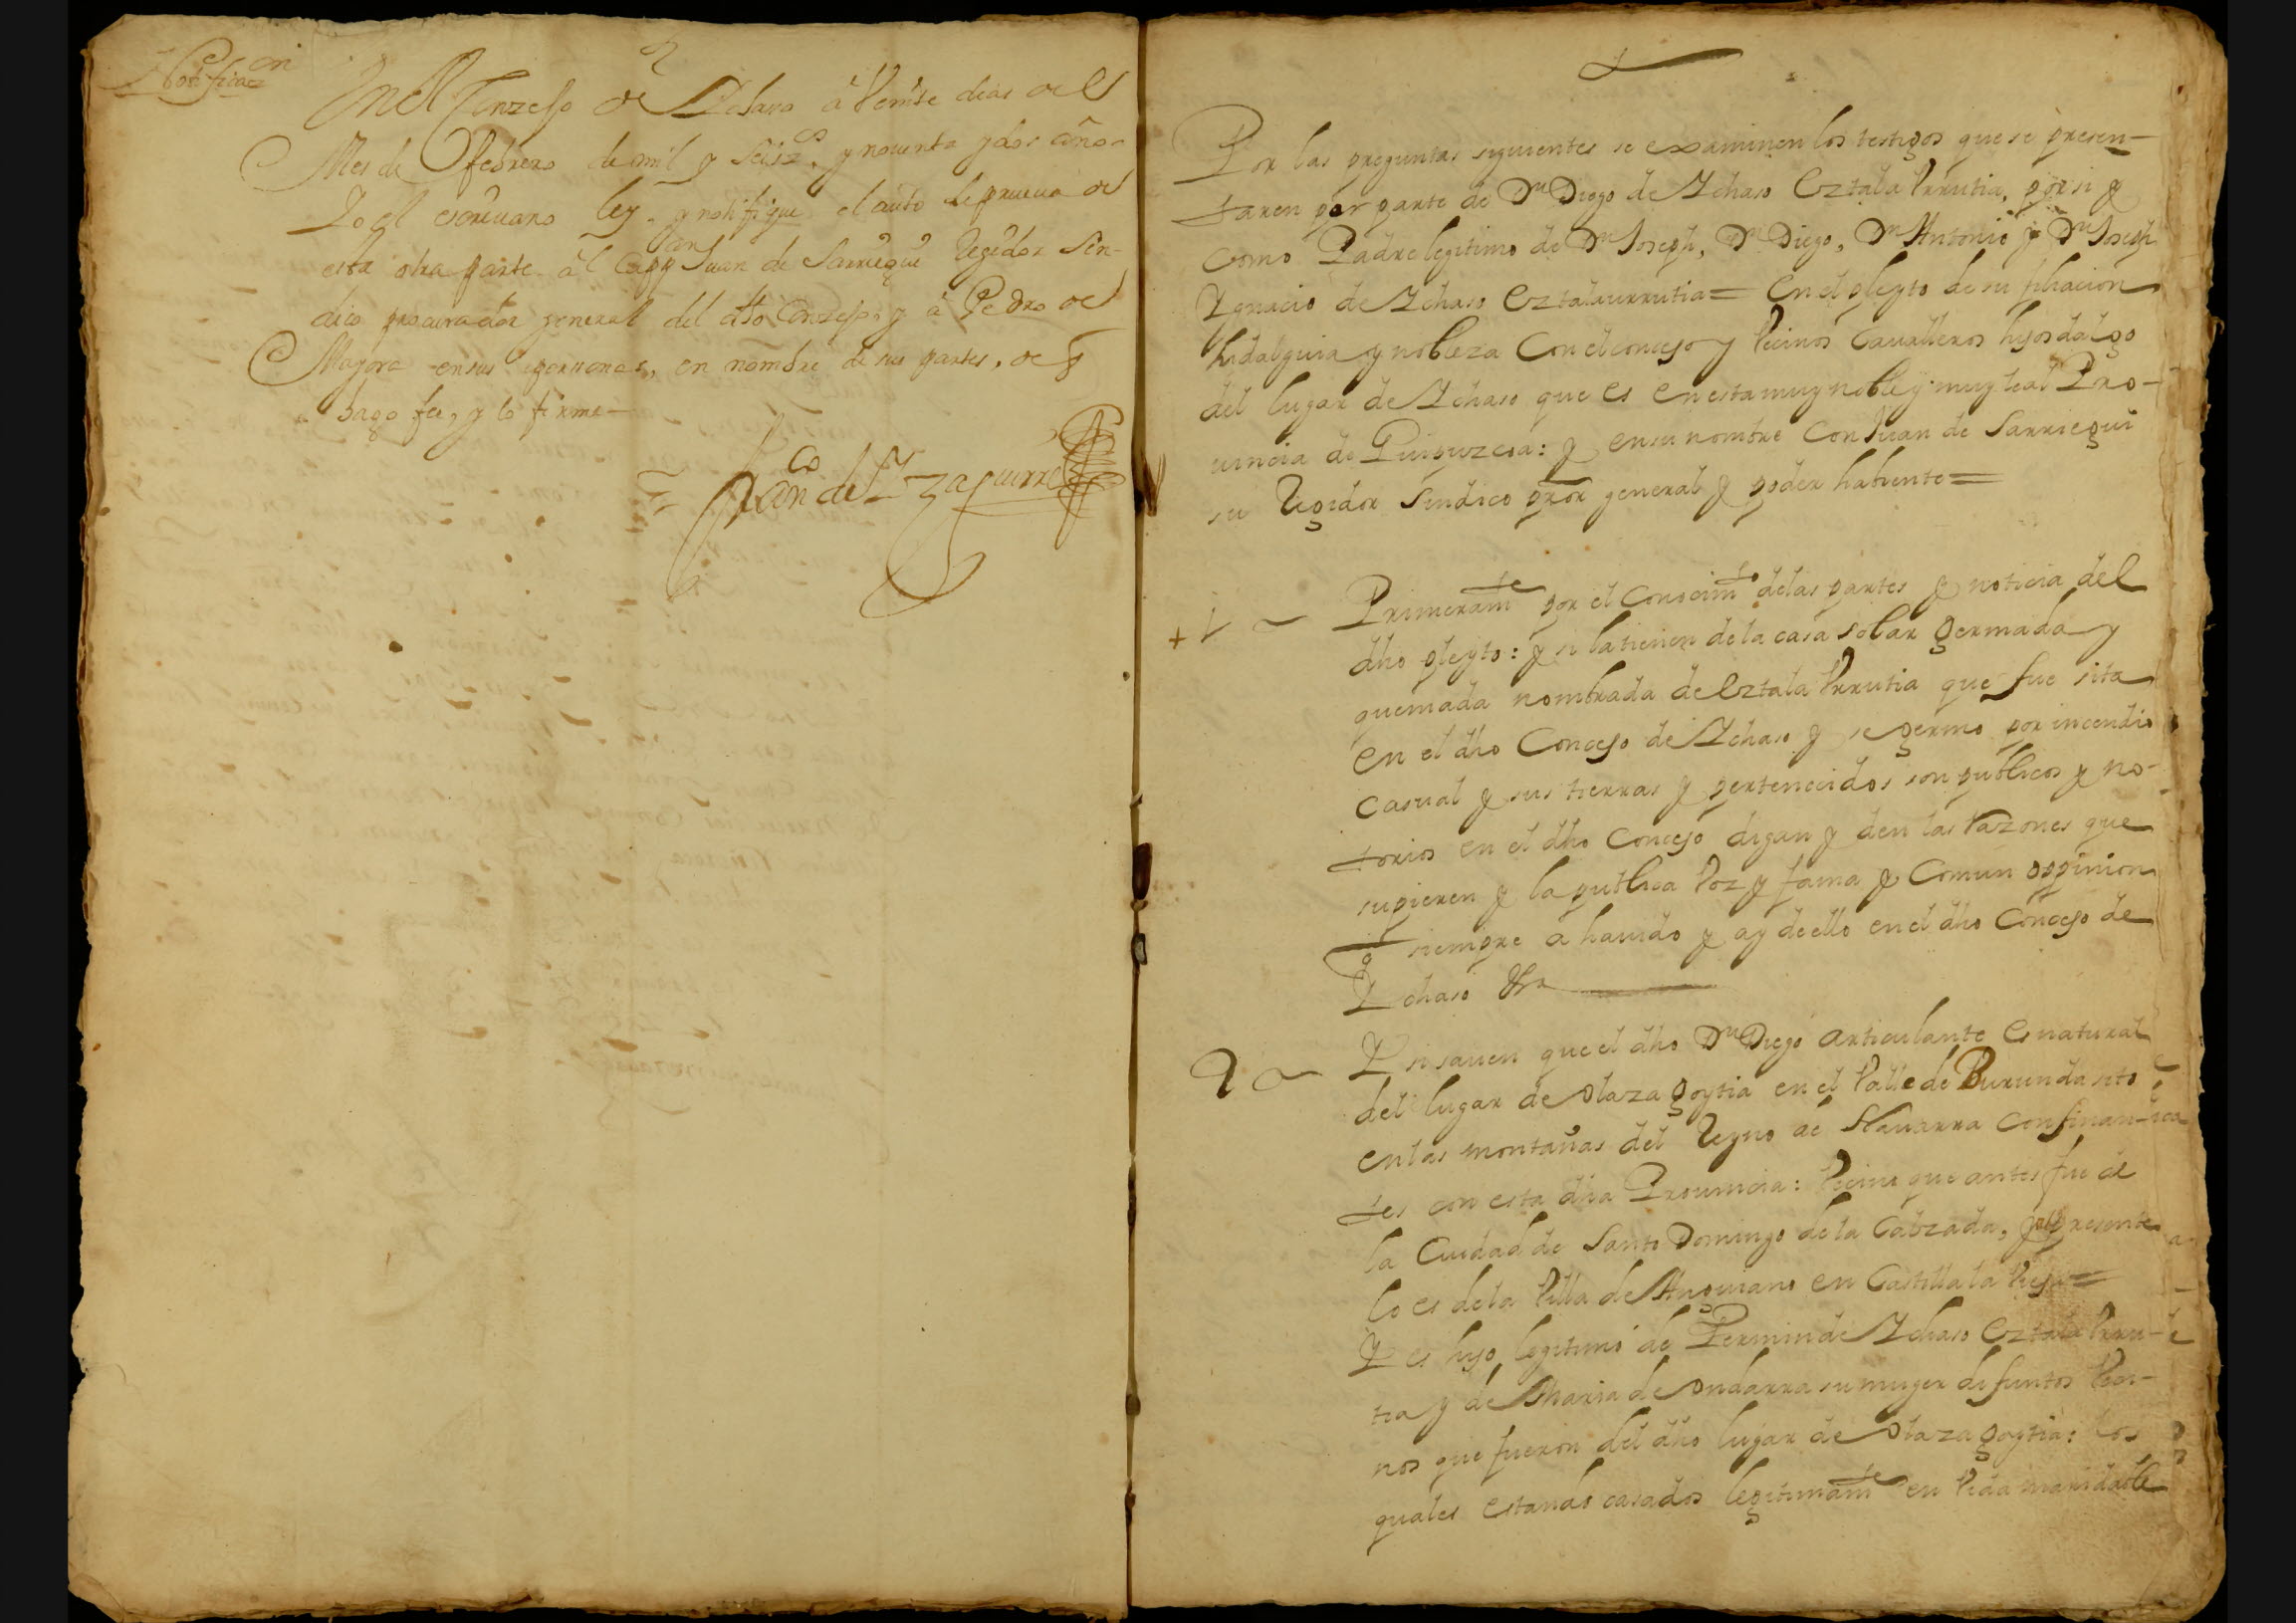 Notificaon
En el Conzejo de Ychaso â Veinte dias del
Mes de febrero de mil y seisz.os y nouenta y dos años
Yo el escriuano ley y notifique el auto de prueua de
esta otra parte âl Cappan Juan de Sarriegui Regidor Sin-
dico procurador general del dho Conzejo, y â Pedro de
Mayora en sus personas, en nombre de sus partes, de q
hago fee, y lo firme—
Franco de Yzaguirre
Por las preguntas siguientes se examinen los testigos que se presen-
taren por parte de Dn Diego de Ychaso Eztala Vrrutia, por si y
como Padre legitimo de Dn Joseph, Dn Diego, Dn Antonio y Dn Joseph
Ygnacio de Ychaso Eztalaurrutia= en el pleyto de su filiacion
hidalguia y nobleza Con el concejo y Vecinos Caualleros hijosdalgo
del lugar de Ychaso que es en esta muy noble y muy leal Pro-
uincia de Guipuzcoa: y en su nombre Con Juan de Sarriegui
su Regidor Sindico pror general y poder habiente=
+ 1 ~ Primeramte por el Conocimto de las partes y noticia del
dho pleyto: y si la tienen de la casa solar yermada y
quemada nombrada de Eztala Vrrutia que fue sita
en el dho Concejo de Ychaso y se yermo por incendio
casual y sus tierras y pertenecidos son publicos y no-
torios en el dho Concejo digan y den las razones que
supieren y la publica Voz y fama y Comun oppinion
q siempre a hauido y ay de ello en el dho Concejo de
Ychaso &a
2 ~ Y si sauen que el dho Dn Diego articulante es natural
del lugar de Olazagoytia en el Valle de Burunda sito
en las montañas del Reyno de Nauarra Confinan-
tes con esta dha Prouincia: Vecino que antes fue de
la Ciudad de Santo Domingo de la Calzada, y al presente
lo es de la Villa de Anguiano en Castilla la Vieja=
Y es hijo legitimo de Fermin de Ychaso Eztala Vrru-
tia y de Maria de Ondarra su muger difuntos Veci-
nos que fueron del dho lugar de Olazagoytia: los
quales estando casados legitimamte en Vida maridable